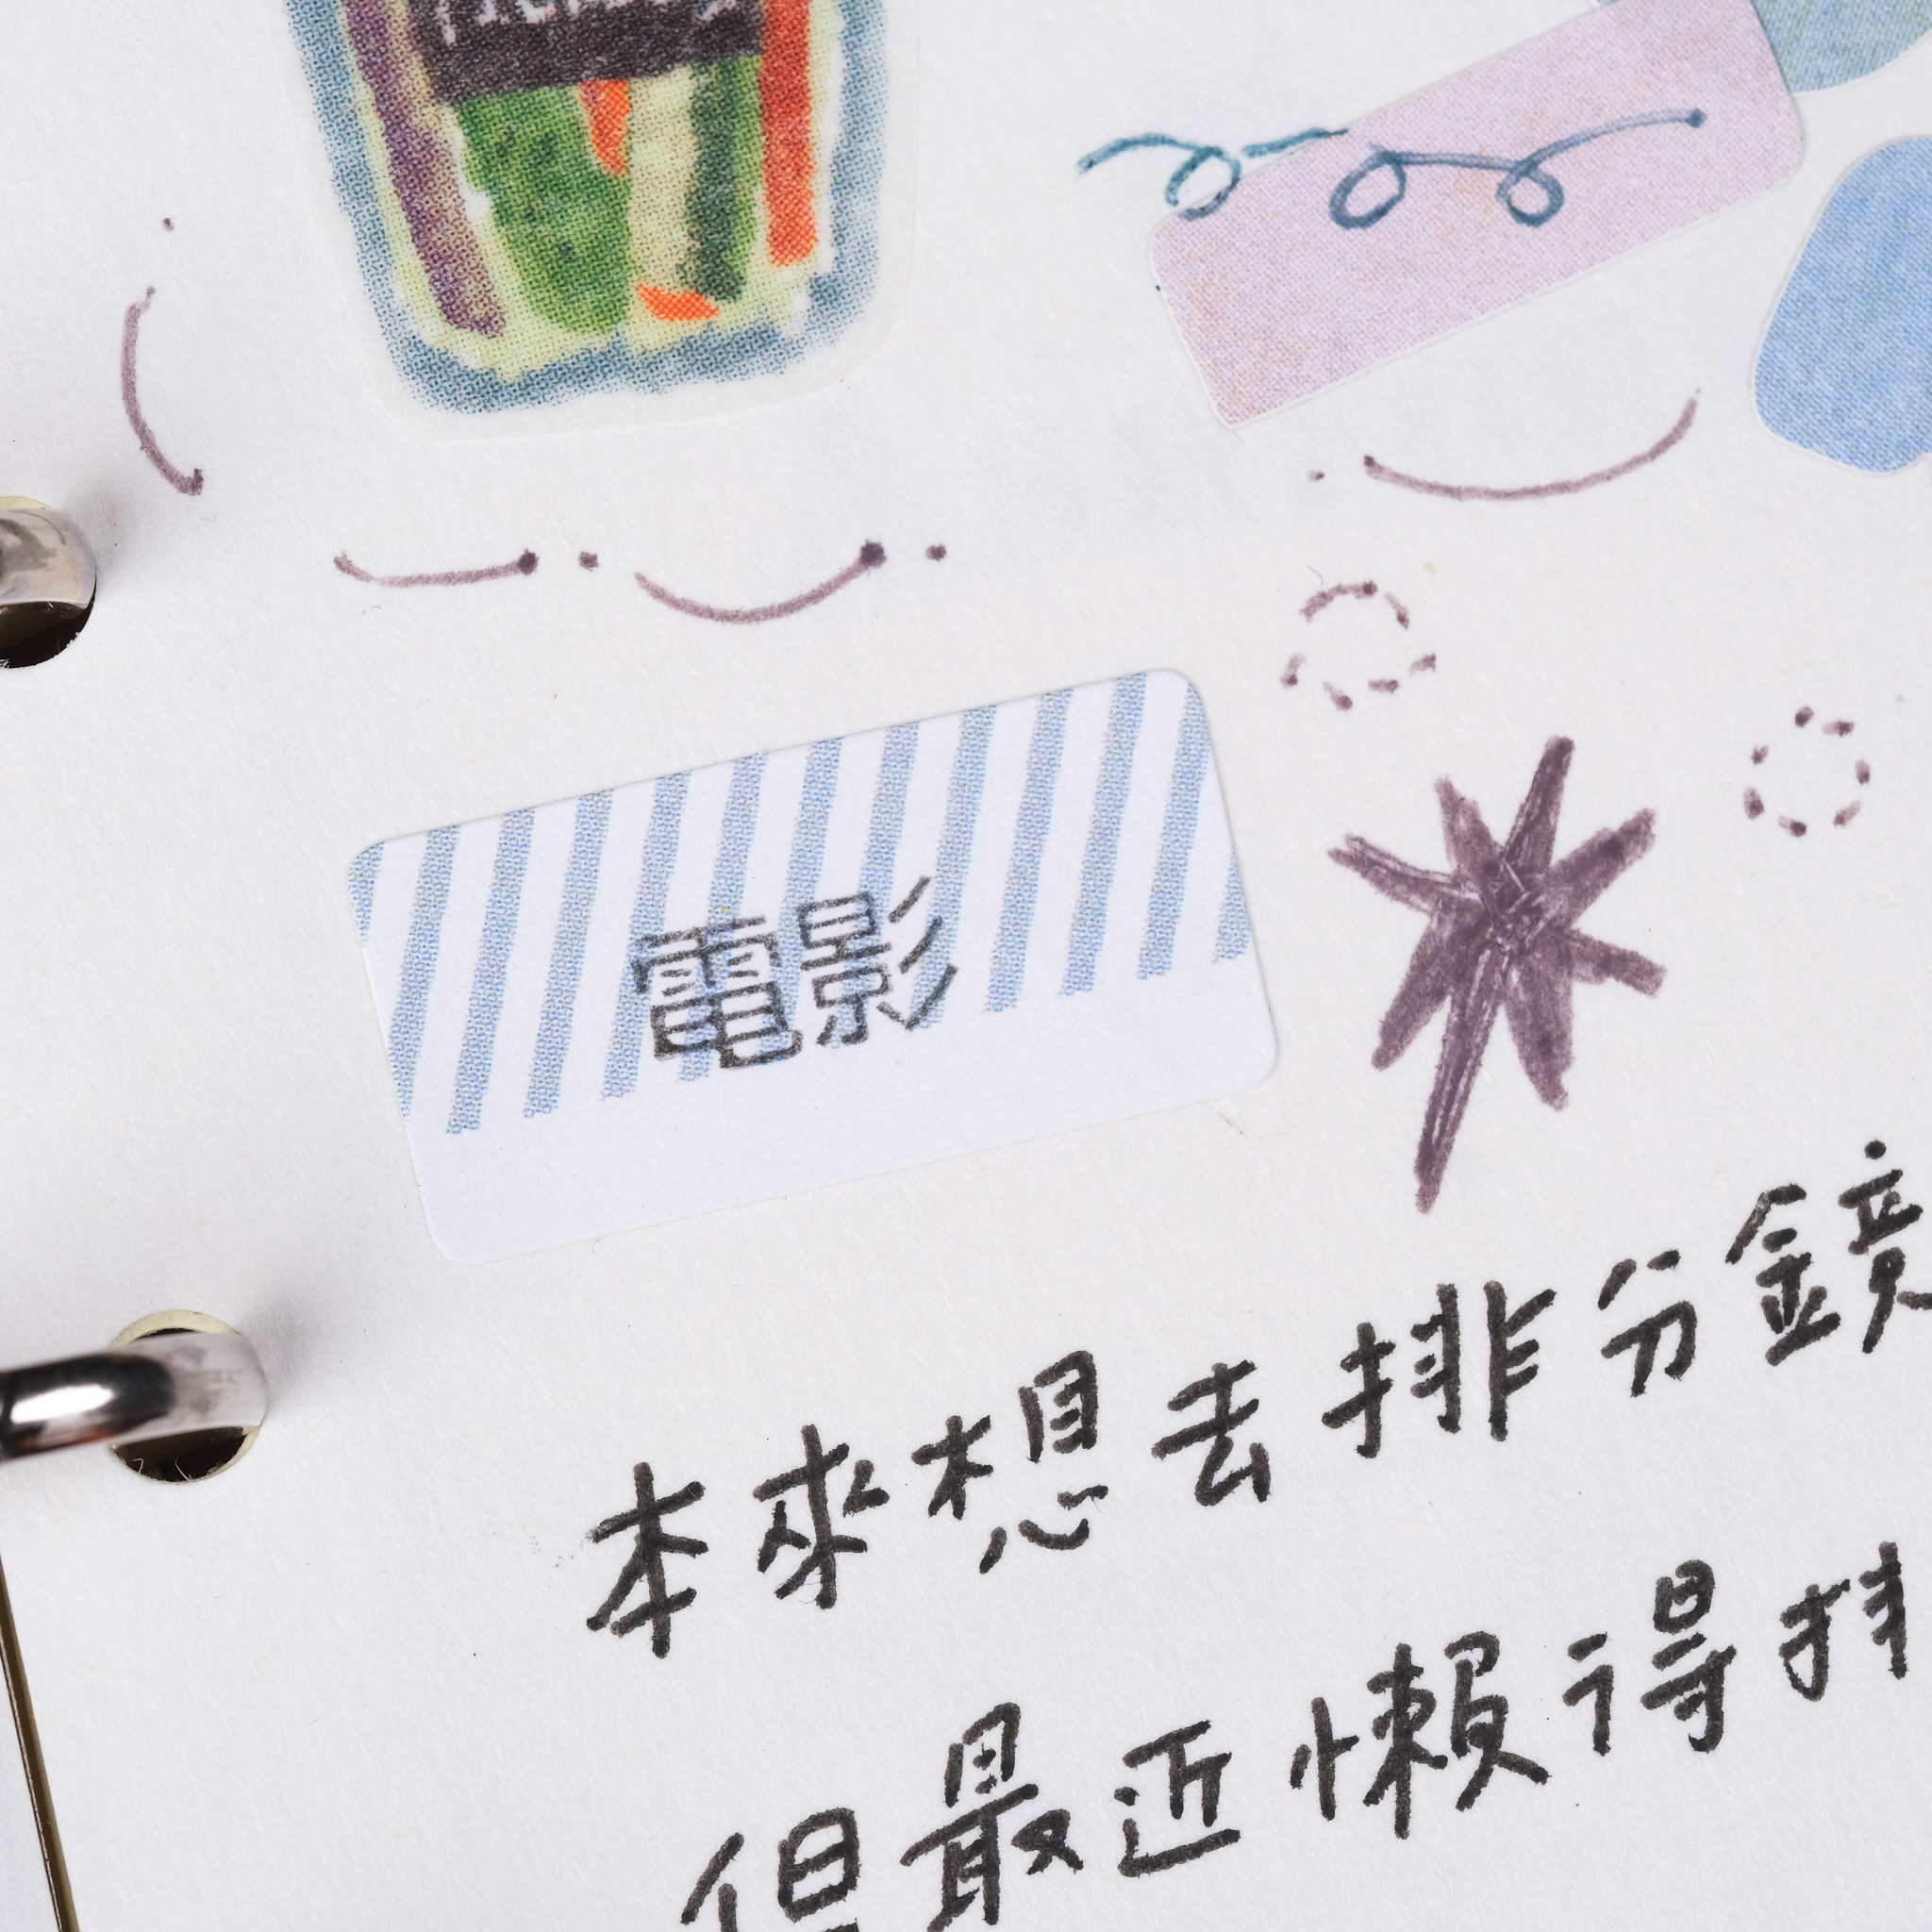 電影
本來想去排分鏡
但最近懶得排